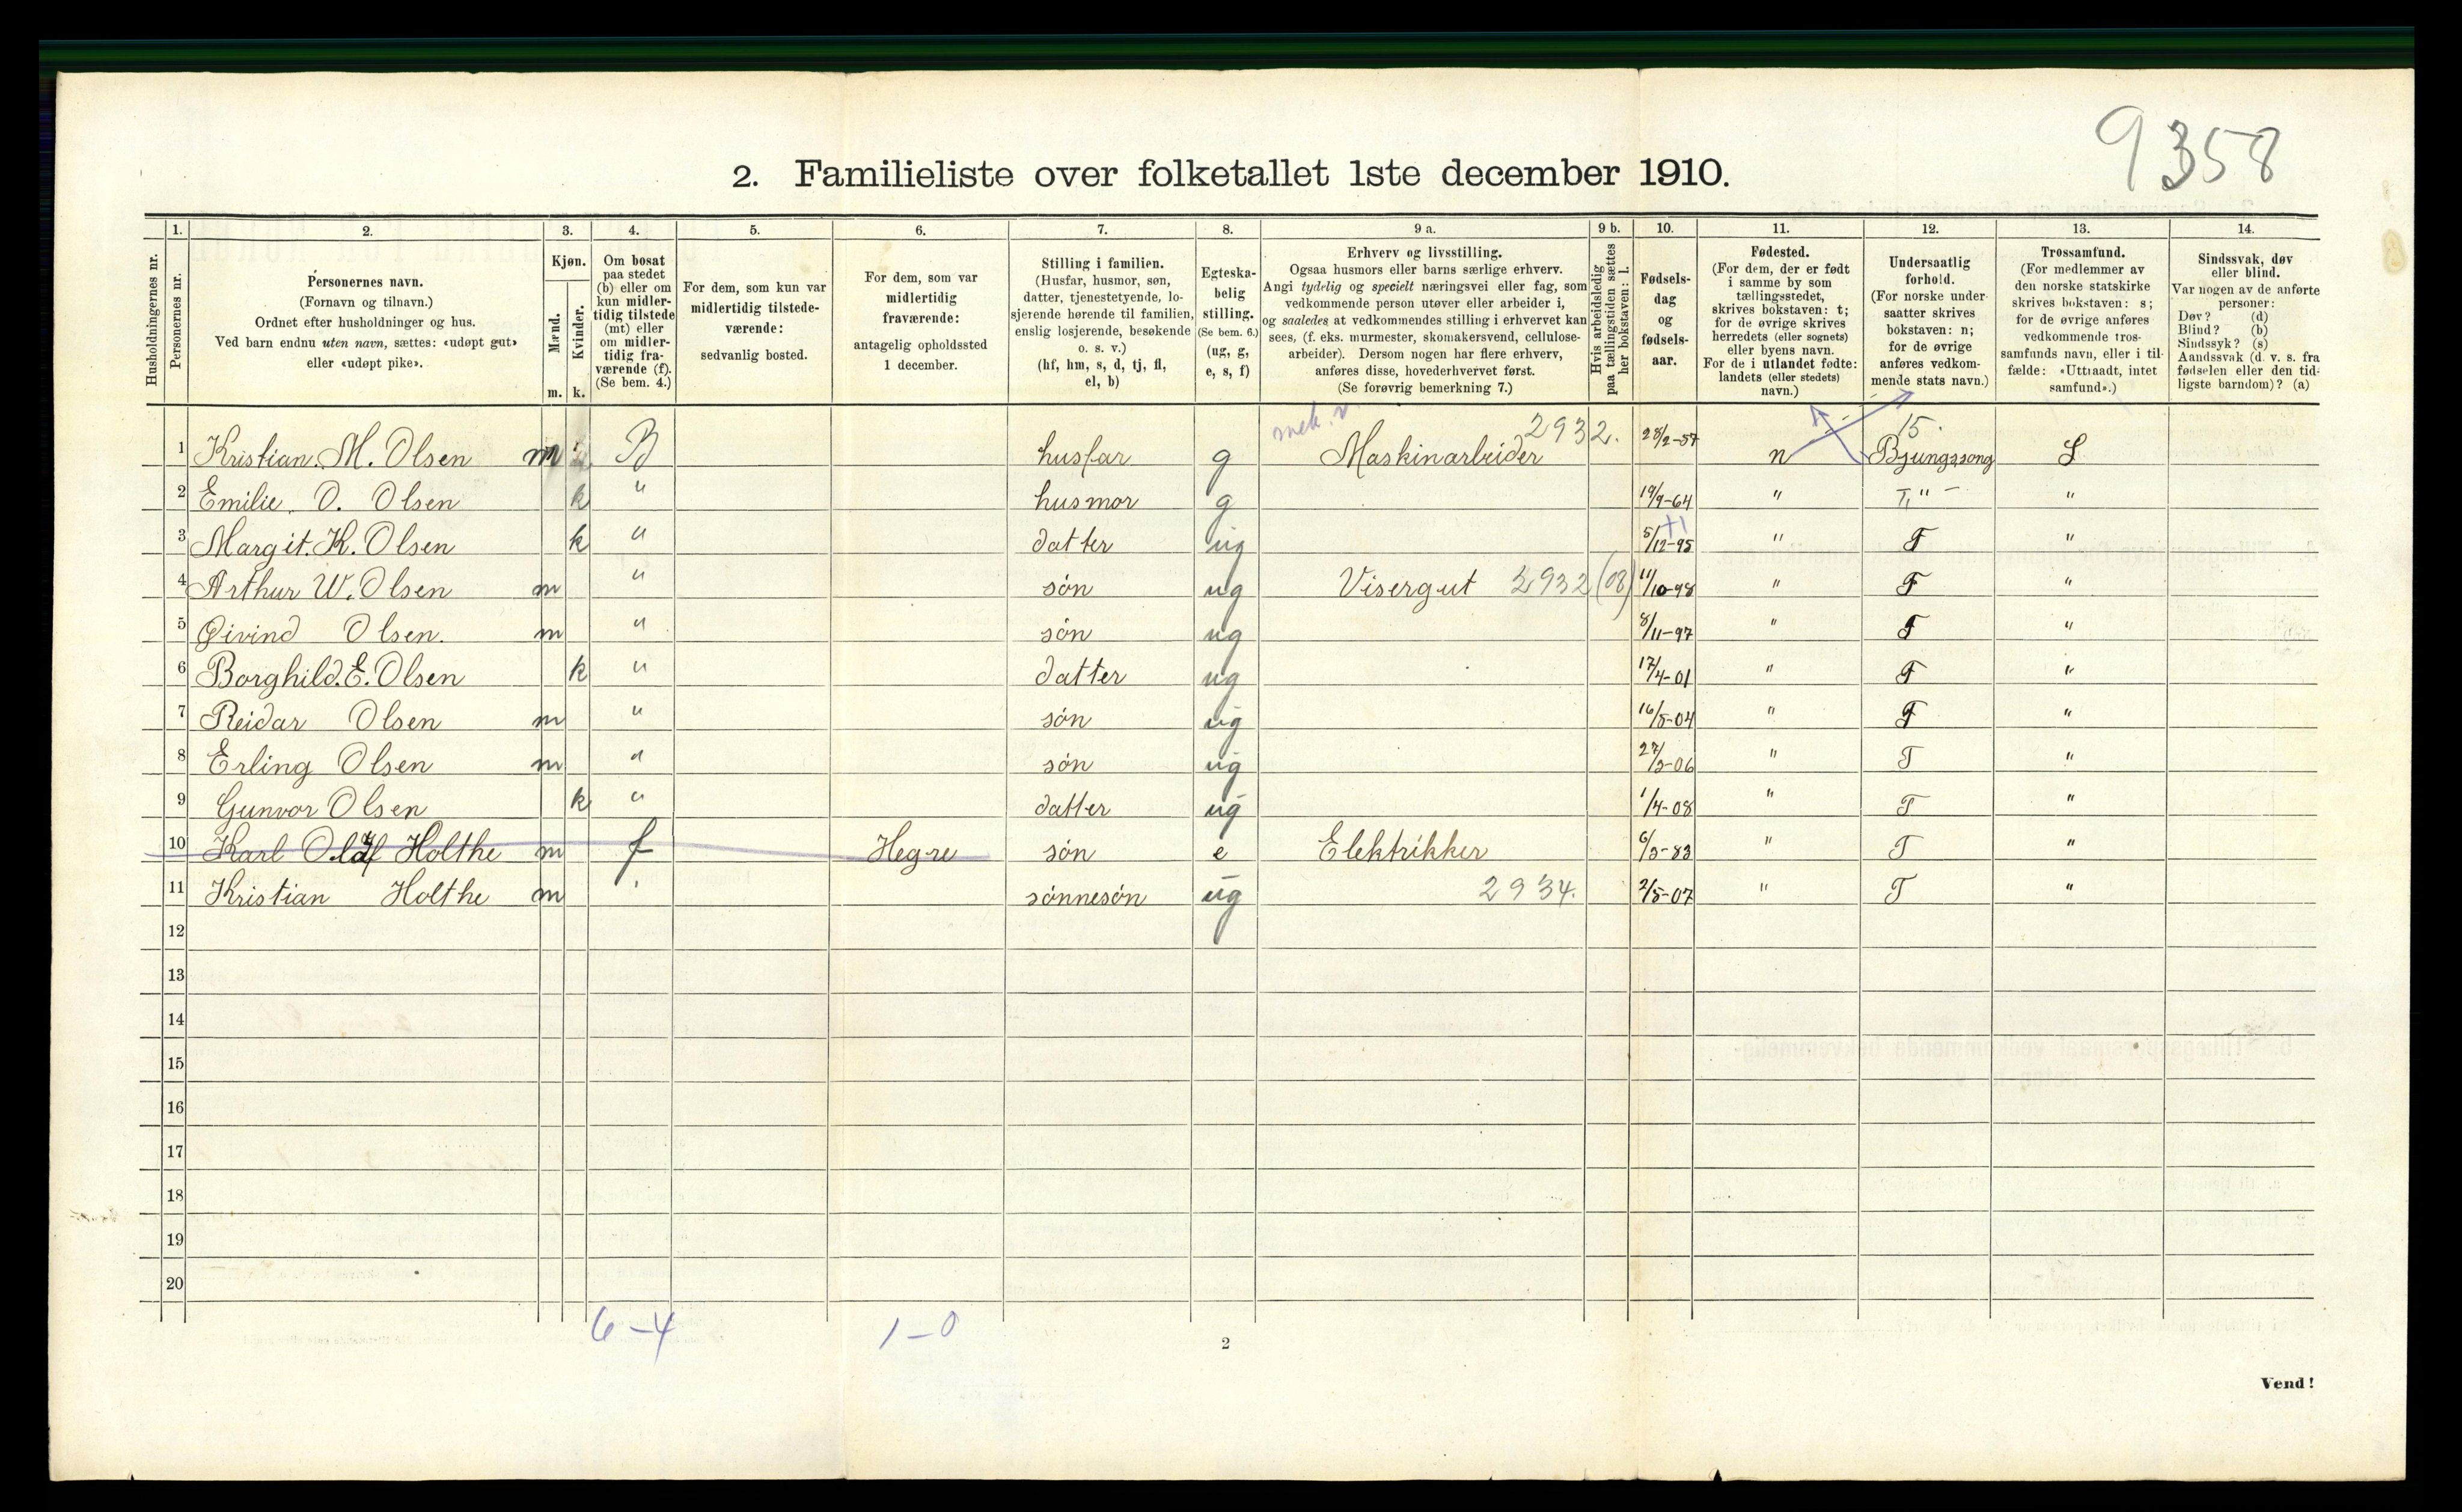 9358
2. Familieliste over folketallet 1ste december 1910.
1. 2. 3. 4. 5. 6. 7. 8. 9 a. 9 b. 10. 11. 12. 13. 14.
Husholdningernes nr.
Personernes nr.
Personernes navn.
(Fornavn og tilnavn.)
Ordnet efter husholdninger og hus.
Ved barn endnu uten navn, sættes: «udøpt gut»
eller «udøpt pike».
Kjøn.
Mænd.
Kvinder.
m. k.
Om bosat
paa stedet
(b) eller om
kun midler-
tidig tilstede
(mt) eller
om midler-
tidig fra-
værende (f).
(Se bem. 4.)
For dem, som kun var
midlertidig tilstede-
værende:
sedvanlig bosted.
For dem, som var
midlertidig
fraværende:
antagelig opholdssted
1 december.
Stilling i familien.
(Husfar, husmor, søn,
datter, tjenestetyende, lo-
sjerende hørende til familien,
enslig losjerende, besøkende
o. s. v.)
(hf, hm, s, d, tj, fl,
el, b)
Egteska-
belig
stilling.
(Se bem. 6.)
(ug, g,
e, s, f)
Erhverv og livsstilling.
Ogsaa husmors eller barns særlige erhverv.
Angi tydelig og specielt næringsvei eller fag, som
vedkommende person utøver eller arbeider i,
og saaledes at vedkommendes stilling i erhvervet kan
sees, (f. eks. murmester, skomakersvend, cellulose-
arbeider). Dersom nogen har flere erhverv,
anføres disse, hovederhvervet først.
(Se forøvrig bemerkning 7.)
Hvis arbeidsledig
paa tællingstiden sættes
her bokstaven: l.
Fødsels-
dag
og
fødsels-
aar.
Fødested.
(For dem, der er født
i samme by som
tællingsstedet,
skrives bokstaven: t;
for de øvrige skrives
herredets (eller sognets)
eller byens navn.
For de i utlandet fødte:
landets (eller stedets)
navn.)
Undersaatlig
forhold.
(For norske under-
saatter skrives
bokstaven: n;
for de øvrige
anføres vedkom-
mende stats navn.)
Trossamfund.
(For medlemmer av
den norske statskirke
skrives bokstaven: s;
for de øvrige anføres
vedkommende tros-
samfunds navn, eller i til-
fælde: «Uttraadt, intet
samfund».)
Sindssvak, døv
eller blind.
Var nogen av de anførte
personer:
Døv? (d)
Blind? (b)
Sindssyk? (s)
Aandssvak (d. v. s. fra
fødselen eller den tid-
ligste barndom)? (a)
mek. v. 2932. 15.
1 Kristian. M. Olsen m B husfar g Maskinarbeider 28/2-57 n S
2 Emilie O. Olsen k " husmor g 19/9-64 " T, " - "
3 Margit. K. Olsen k " datter ug 5/12-95 " T "
4 Arthur W. Olsen m " søn ug Visergut 2932 (08) 11/10-98 " T "
5 Øivind Olsen. m " søn ug 8/11-97 " T "
6 Borghild. E. Olsen k " datter ug 17/4-01 " T "
7 Reidar Olsen m " søn ug 16/5-04 " T "
8 Erling Olsen m " søn ug " T "
9 Gunvor Olsen k " datter ug 1/4-08 " T "
10 Karl Olaf Holthe m f Hegre søn e Elektrikker " T "
11 Kristian Holthe m " sønnesøn ug 2934. 2/5-07 " T "
12
13
14
15
16
17
18
19
20
6-4 1-0
2
Vend!